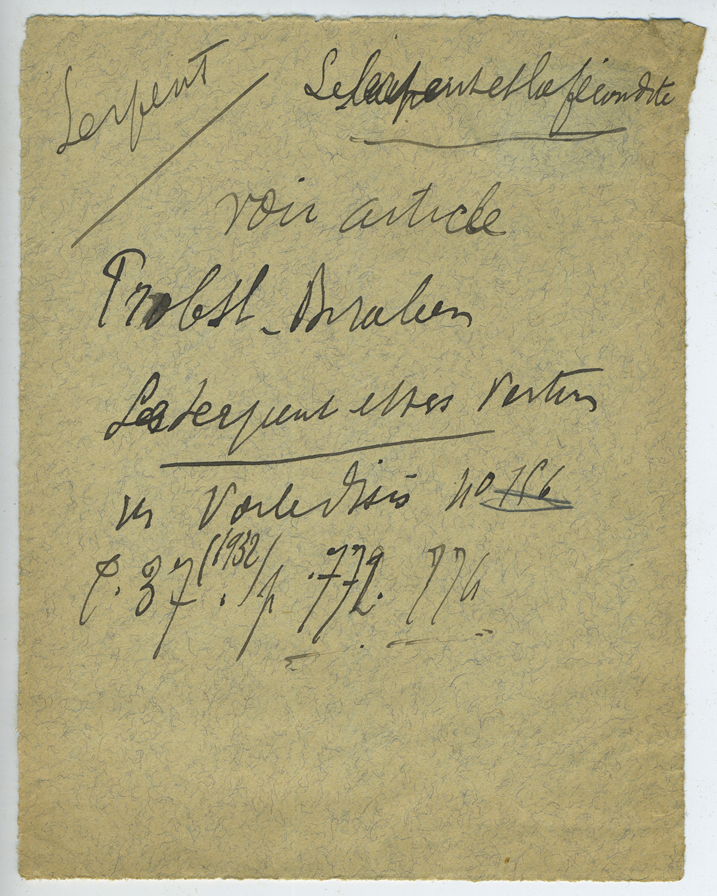 Serpent
Le serpent et la fécondité
voir article
Probst-Biraben
Le Serpent et ses Vertus
in Voile d'Isis no 156
t. 37 (1932) p. 772. 774